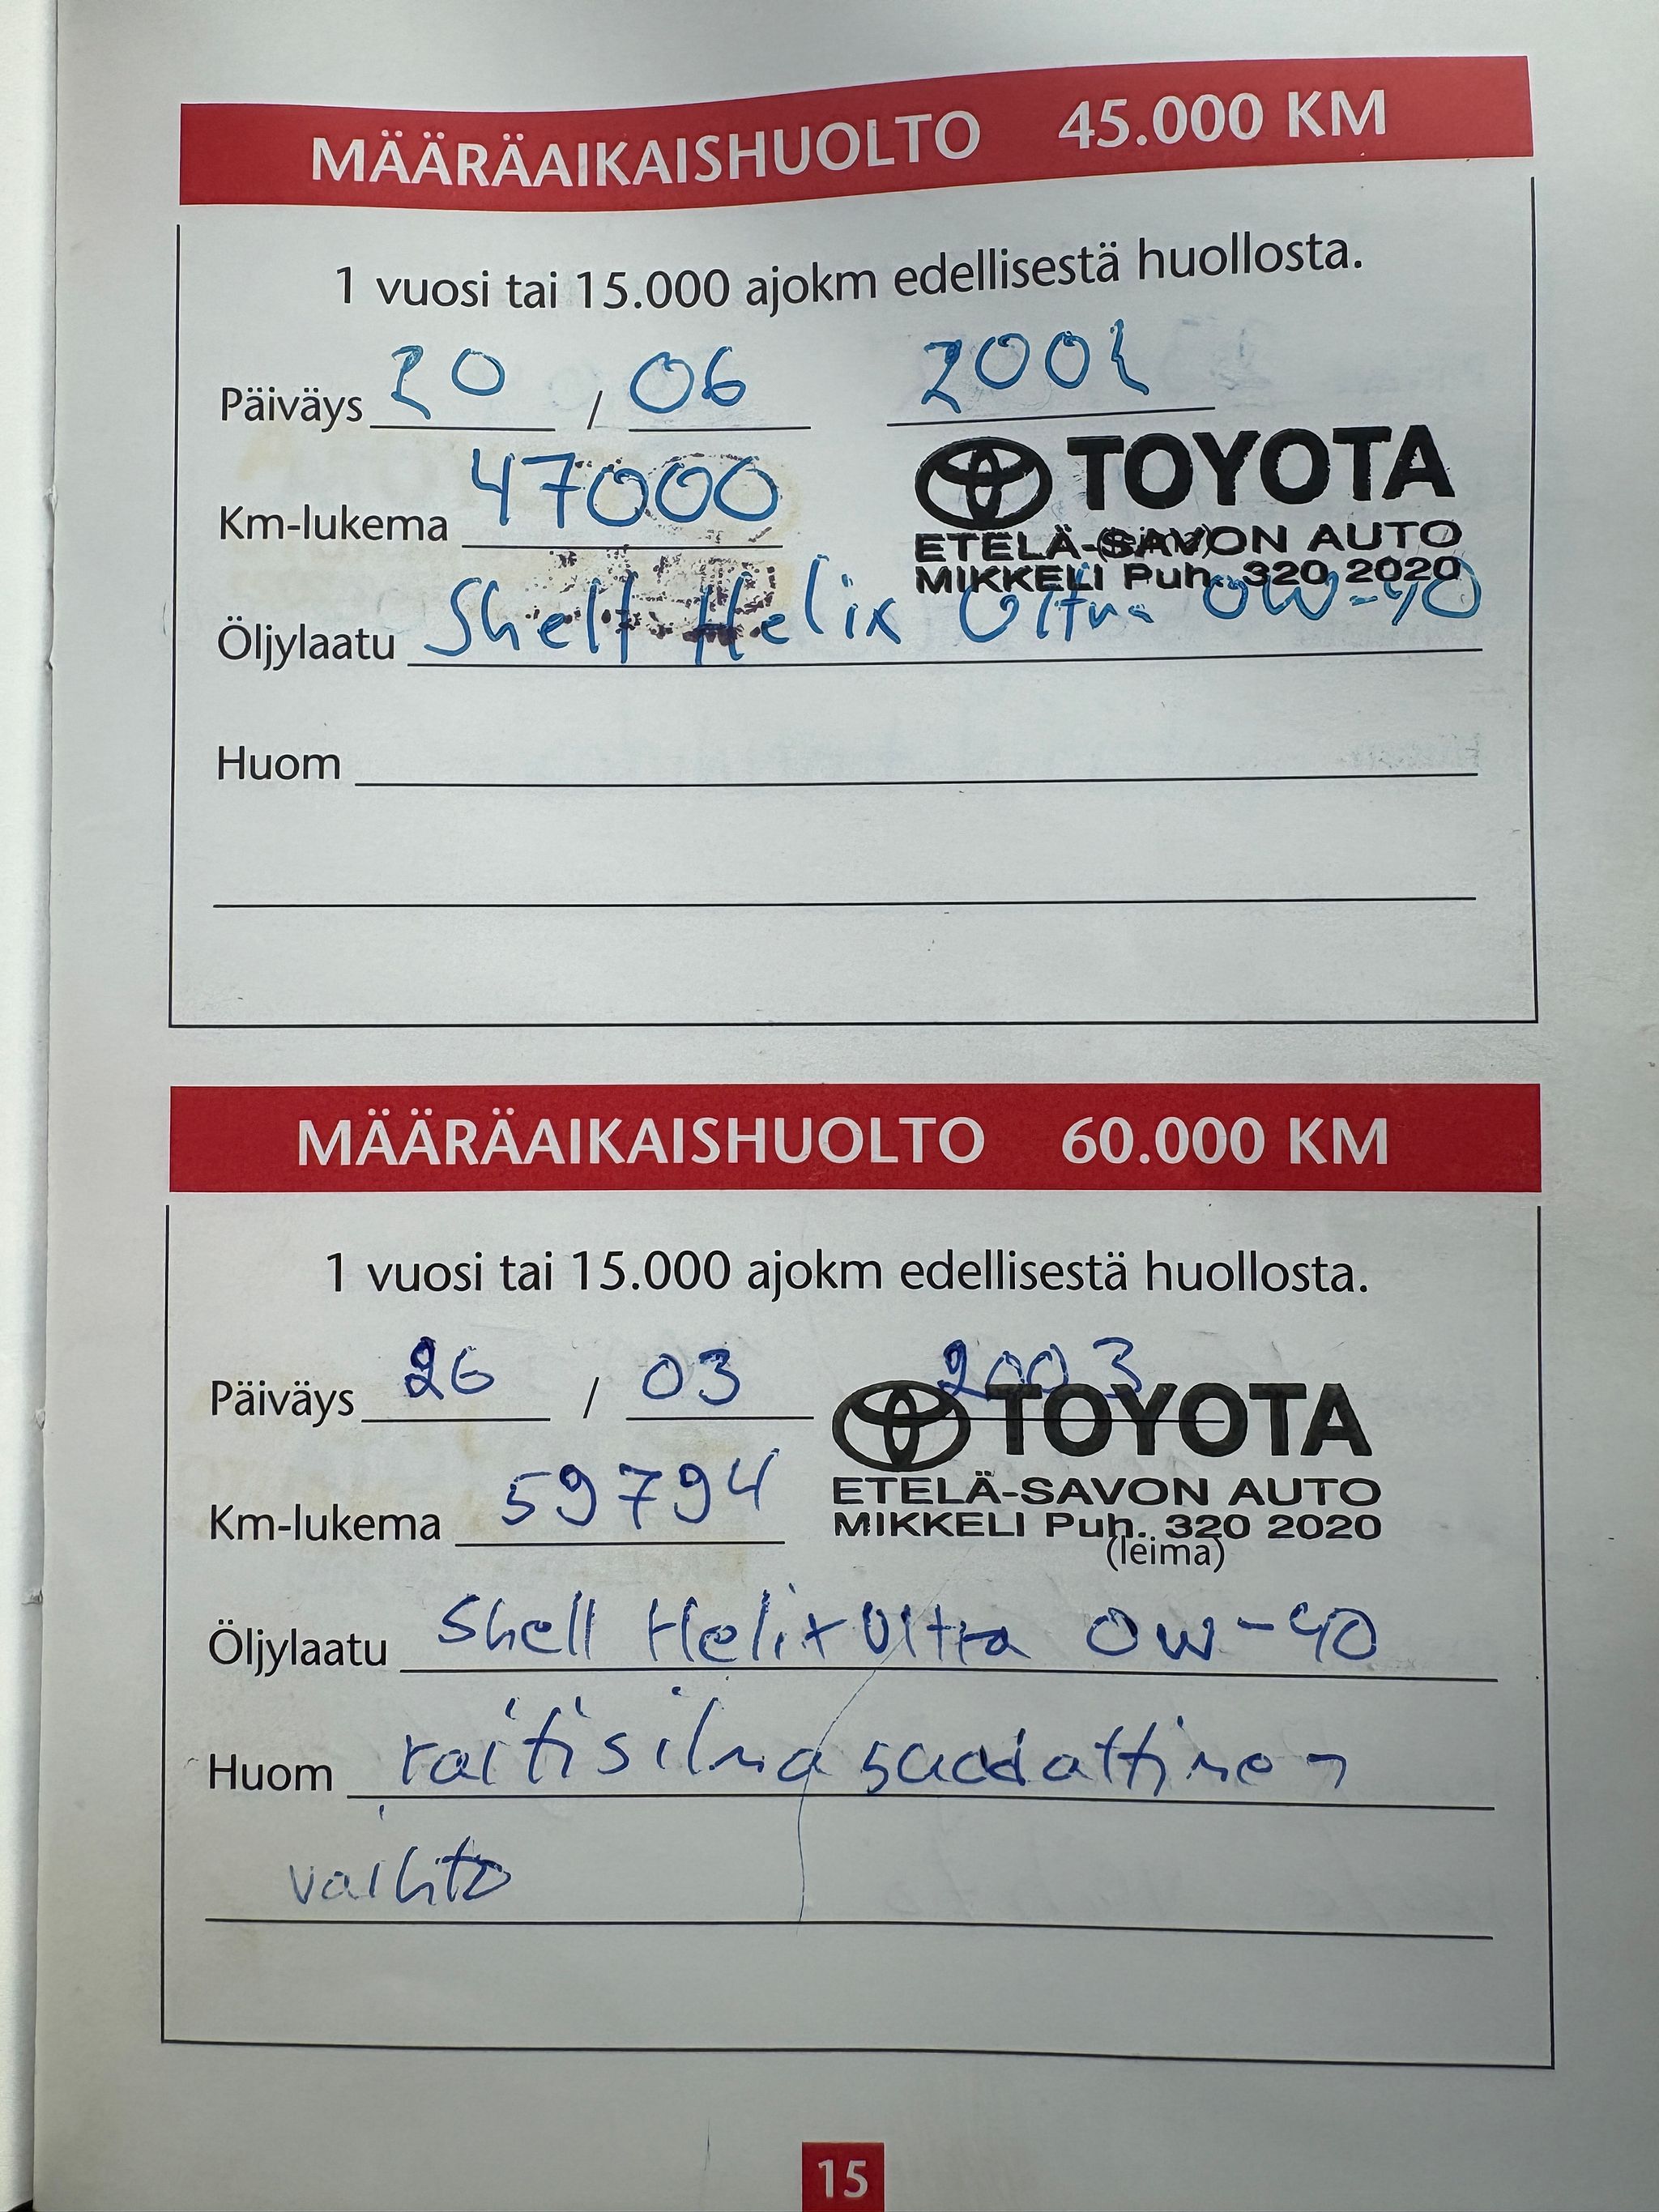 MÄÄRÄAIKAISHUOLTO 45.000 KM
1 vuosi tai 15.000 ajokm edellisestä huollosta.
Päiväys 20 / 06 2002
Km-lukema 47000
TOYOTA
ETELÄ-SAVON AUTO
MIKKELI Puh. 320 2020
Öljylaatu Shell Helix Ultra 0W-40
Huom
MÄÄRÄAIKAISHUOLTO 60.000 KM
1 vuosi tai 15.000 ajokm edellisestä huollosta.
Päiväys 26 / 03 2003
TOYOTA
Km-lukema 59794
ETELÄ-SAVON AUTO
MIKKELI Puh. 320 2020
(leima)
Öljylaatu Shell Helix Ultra 0W-40
Huom raitisilma suodattimen
vaihto
15